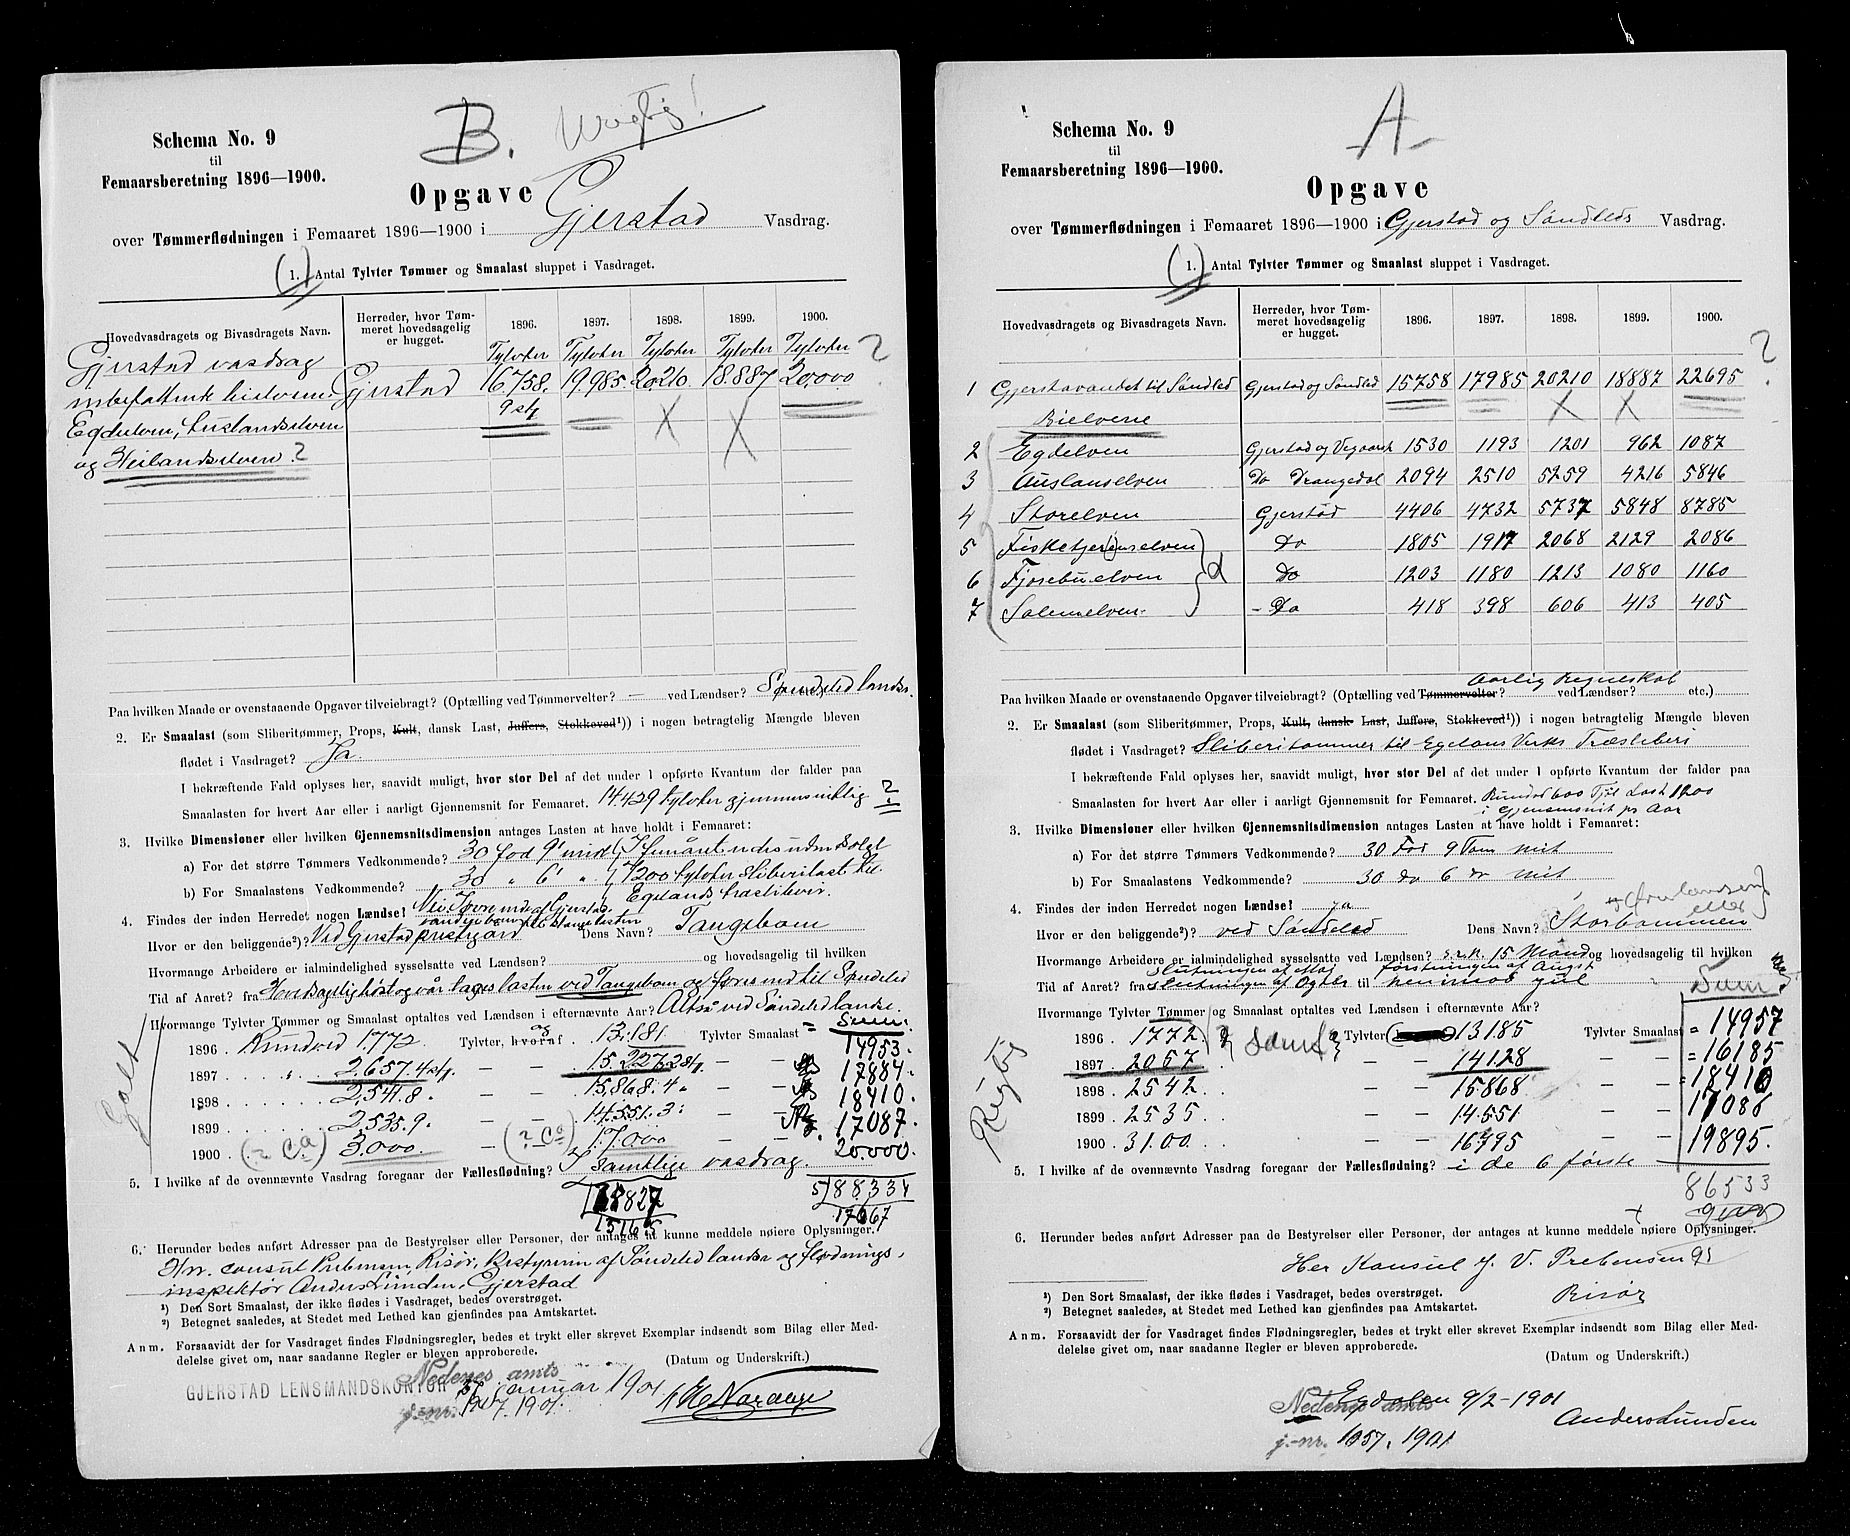 B. Urigtig!
Schema No. 9
til
Femaarsberetning 1896—1900.
Opgave
over Tømmerflødningen i Femaaret 1896—1900 i Gjerstad Vasdrag.
(1.) Antal Tylvter Tømmer og Smaalast sluppet i Vasdraget.
Hovedvasdragets og Bivasdragets Navn. Herreder, hvor Tømmeret hovedsagelig er hugget. 1896. 1897. 1898. 1899. 1900.
Tylvter Tylvter Tylvter Tylvter Tylvter ?
Gjerstad vasdrag
indbefattende bielvene Gjerstad 16.758. 19.985. 20210. 18.887 20,000
Egdeelven, 9 st X X
og Heilandselven ?
Paa hvilken Maade er ovenstaaende Opgaver tilveiebragt? (Optælling ved Tømmervelter? — ved Lændser? Søndeled landse.
2. Er Smaalast (som Sliberitømmer, Props, Kult, dansk Last, Juffers, Stokkeved¹)) i nogen betragtelig Mængde bleven
flødet i Vasdraget? Ja
I bekræftende Fald oplyses her, saavidt muligt, hvor stor Del af det under 1 opførte Kvantum der falder paa
Smaalasten for hvert Aar eller i aarligt Gjennemsnit for Femaaret. 14.429 tylvter gjennemsnitlig ?
3. Hvilke Dimensioner eller hvilken Gjennemsnitsdimension antages Lasten at have holdt i Femaaret:
a) For det større Tømmers Vedkommende? 30 fod 9" midt I femåret
b) For Smaalastens Vedkommende? 30 " 6" " 7200 tylvter sliberilast til
Egelands træsliberi.
4. Findes der inden Herredet nogen Lændse? Nei
Hvor er den beliggende²)? Ved Gjerstad prestegård Dens Navn? Tangebom
Hvormange Arbeidere er ialmindelighed sysselsatte ved Lændsen? og hovedsagelig til hvilken
Tid af Aaret? fra Hovedsagelig høst og vår lages lasten ved Tangebom og føres ind til Søndeled
Hvormange Tylvter Tømmer og Smaalast optaltes ved Lændsen i efternævnte Aar? Altså ved Søndeled landse.
Galt
1896 Rundved 1.772. Tylvter, hvoraf og 13.181. Tylvter Smaalast = Sum: 14953.
1897 " 2.657.4 st. — — 15.227.2 st. — — 17884.
1898 2.541.8. — — 15.868.4. — — 18410.
1899 2.535.9. — — 14.551.3. — — 17087.
1900 (? Ca) 3.000. — (? Ca) 17.000 — — 20.000.
5. I hvilke af de ovennævnte Vasdrag foregaar der Fællesflødning? I samtlige vasdrag.
5) 88334
15165 17667
6. Herunder bedes anført Adresser paa de Bestyrelser eller Personer, der antages at kunne meddele nøiere Oplysninger.
Hr. consul Prebensen, Risør, bestyreren af Søndeled landse og flødnings-
inspektør Anders Lunden, Gjerstad
¹) Den Sort Smaalast, der ikke flødes i Vasdraget, bedes overstrøget.
²) Betegnet saaledes, at Stedet med Lethed kan gjenfindes paa Amtskartet.
Anm. Forsaavidt der for Vasdraget findes Flødningsregler, bedes et trykt eller skrevet Exemplar indsendt som Bilag eller Meddelelse
givet om, naar saadanne Regler er bleven approberede.
(Datum og Underskrift.)
Nedenes amts
GJERSTAD LENSMANDSKONTOR januar 1901
j.-nr. 1901.
A
Schema No. 9
til
Femaarsberetning 1896—1900.
Opgave
over Tømmerflødningen i Femaaret 1896—1900 i Gjerstad og Sandleds Vasdrag.
(1.) Antal Tylvter Tømmer og Smaalast sluppet i Vasdraget.
Hovedvasdragets og Bivasdragets Navn. Herreder, hvor Tømmeret hovedsagelig er hugget. 1896. 1897. 1898. 1899. 1900.
?
1 Gjerstavandet til Søndled Gjerstad og Søndled 15758 17985 20210 18887 22695
Bielvene X X
2 Egdelven Gjerstad og Vegaarsh 1530 1193 1201 962 1087
3 Auslanselven Do Drangedal 2094 2510 5259 4216 5846
4 Storelven Gjerstad 4406 4732 5737 5848 8785
5 Fisketjerenselven Do 1805 1917 2068 2129 2086
6 Fjosebuelven Do 1203 1180 1213 1080 1160
7 Solemelven - Do 418 398 606 413 405
Aarlig Regnskab
Paa hvilken Maade er ovenstaaende Opgaver tilveiebragt? (Optælling ved Tømmervelter? ved Lændser? etc.)
2. Er Smaalast (som Sliberitømmer, Props, Kult, dansk Last, Juffers, Stokkeved¹)) i nogen betragtelig Mængde bleven
flødet i Vasdraget? Sliberitømmer til Egelans Verks Træsliberi
I bekræftende Fald oplyses her, saavidt muligt, hvor stor Del af det under 1 opførte Kvantum der falder paa
Smaalasten for hvert Aar eller i aarligt Gjennemsnit for Femaaret. Rundvd 600 Tylt Last 1200
i Gjensnit pr Aar
3. Hvilke Dimensioner eller hvilken Gjennemsnitsdimension antages Lasten at have holdt i Femaaret:
a) For det større Tømmers Vedkommende? 30 Fod 9 Tom mit
b) For Smaalastens Vedkommende? 30 do 6 do mit
4. Findes der inden Herredet nogen Lændse? ja
eller
Hvor er den beliggende²)? ved Søndeled Dens Navn? Storbommen
Hvormange Arbeidere er ialmindelighed sysselsatte ved Lændsen? 15 Mand og hovedsagelig til hvilken
slutningen af Maj førstningen af Augst
Tid af Aaret? fra slutningen af Ogtbr til henimod jul
Hvormange Tylvter Tømmer og Smaalast optaltes ved Lændsen i efternævnte Aar?
Rigtig
Sum
1896 1772 Tylvter 13185 Tylvter Smaalast = 14957
1897 2057 — — 14128 — — = 16185
1898 2542 — — 15868 — — = 18410
1899 2535 — — 14551 — — 17086
1900 3100 — — 16795 — — 19895.
5. I hvilke af de ovennævnte Vasdrag foregaar der Fællesflødning? i de 6 første
86533
6. Herunder bedes anført Adresser paa de Bestyrelser eller Personer, der antages at kunne meddele nøiere Oplysninger.
Her Konsul J. V. Prebensen
Risør
¹) Den Sort Smaalast, der ikke flødes i Vasdraget, bedes overstrøget.
²) Betegnet saaledes, at Stedet med Lethed kan gjenfindes paa Amtskartet.
Anm. Forsaavidt der for Vasdraget findes Flødningsregler, bedes et trykt eller skrevet Exemplar indsendt som Bilag eller Meddelelse
givet om, naar saadanne Regler er bleven approberede.
(Datum og Underskrift.)
Egdalen 9/2-1901
Nedenes amts
Anders Lunden
j.-nr. 1057. 1901